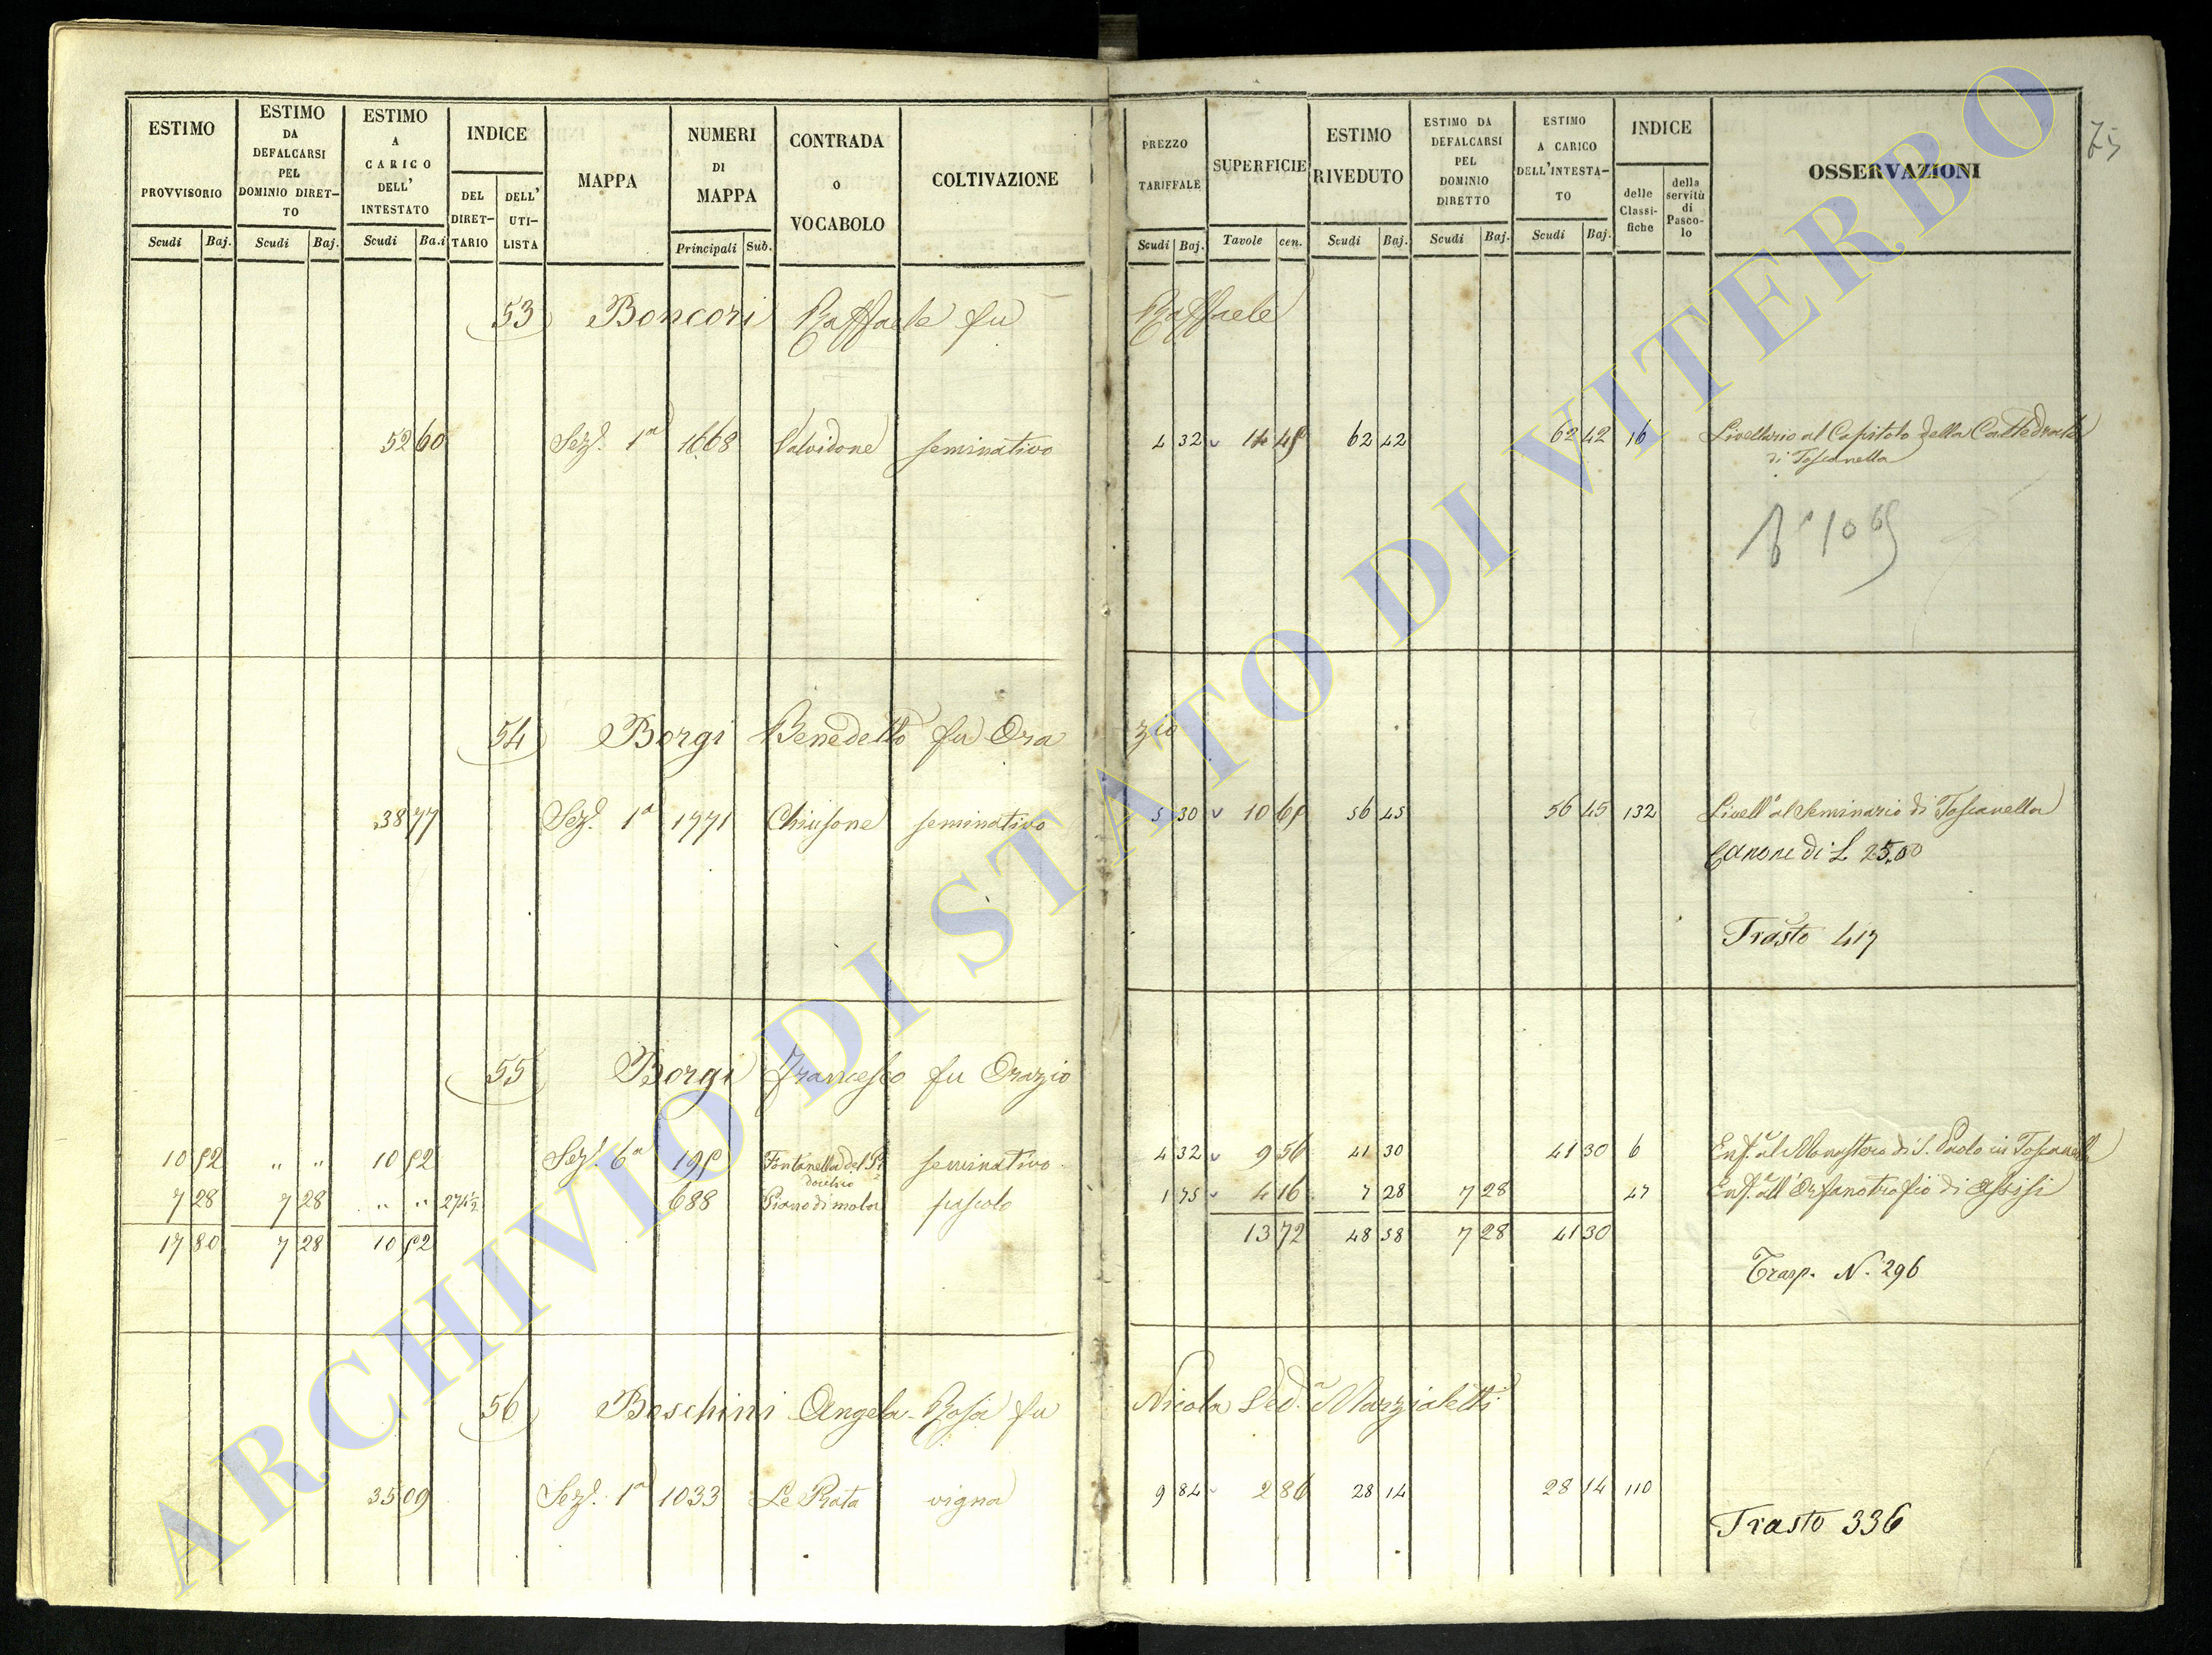 ESTIMO PROVVISORIO Scudi Baj.
ESTIMO DA DEFALCARSI PEL DOMINIO DIRET- TO Scudi Baj.
ESTIMO A CARICO DELL' INTESTATO Scudi Ba.i
INDICE DEL DIRET- TARIO DELL' UTI- LISTA
MAPPA
NUMERI DI MAPPA Principali Sub.
CONTRADA O VOCABOLO
COLTIVAZIONE
PREZZO TARIFFALE Scudi Baj.
SUPERFICIE Tavole cen.
ESTIMO RIVEDUTO Scudi Baj.
ESTIMO DA DEFALCARSI PEL DOMINIO DIRETTO Scudi Baj.
ESTIMO A CARICO DELL'INTESTA- TO Scudi Baj.
INDICE delle Classi- fiche della servitù di Pasco- lo
OSSERVAZIONI
75
53 Boncori Raffaele fu Raffaele
52 60 Sez. 1a 1668 Valvidone seminativo 4 32 14 45 62 42 62 42 16 Livellario al Capitolo della Cattedrale
di Toscanella
No 1065
54 Borgi Benedetto fu Ora zio
38 77 Sez. 1a 1771 Chiusone seminativo 5 30 10 65 56 45 56 45 132 Livello al Seminario di Toscanella
Canone di L 25,00
Trasto 417
55 Borgi Francesco fu Orazio
10 52 " " 10 52 Sez. 6a 195 Fontanella del seminativo 4 32 9 56 41 30 41 30 6 Enf. al Monastero di S. Paolo in Toscanella
7 28 7 28 " " 274½ 688 Piano di mola pascolo 1 75 4 16 7 28 7 28 47 Enf. all'Orfanotrofio di Assisi
17 80 7 28 10 52 13 72 48 58 7 28 41 30
Trasp. N. 296
56 Boschini Angela Rosa fu Nicola Ved.a Marzialetti
35 09 Sez. 1a 1033 Le Prata vigna 9 84 2 86 28 14 28 14 110
Trasto 336
ARCHIVIO DI STATO DI VITERBO